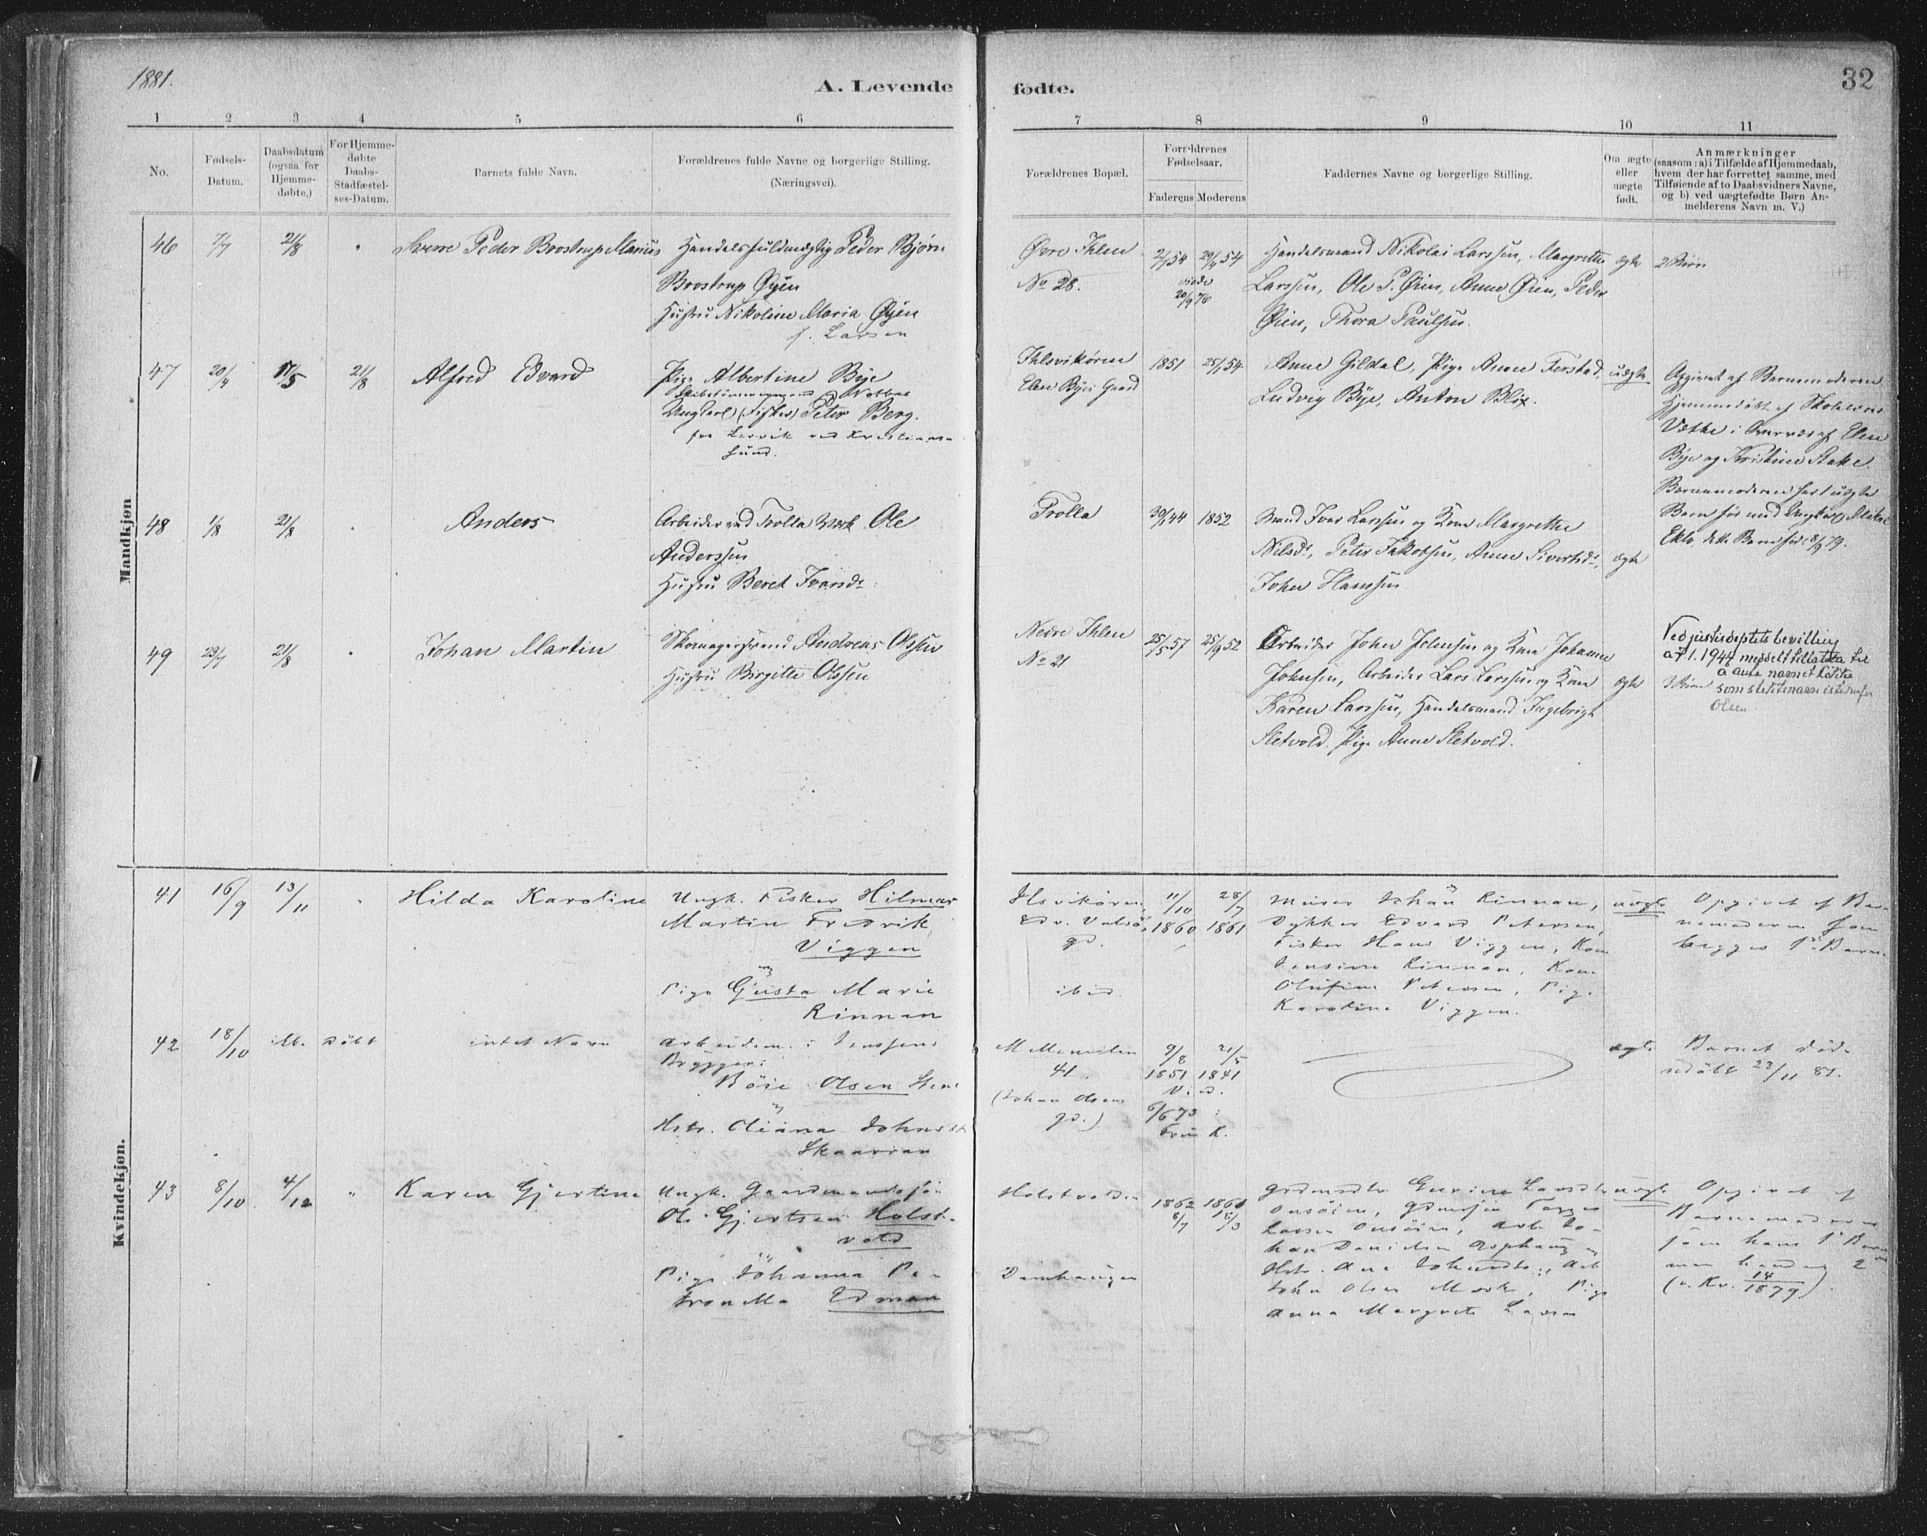 1881.
A. Levende fødte.
32
1 2 3 4 5 6 7 8 9 10 11
No.
Fødsels-Datum.
Daabsdatum (ogsaa for Hjemmedøbte.)
For Hjemmedøbte Daabs-Stadfæstelses-Datum.
Barnets fulde Navn.
Forældrenes fulde Navne og borgerlige Stilling.
(Næringsvei).
Forældrenes Bopæl.
Forældrenes Fødselsaar.
Faderens Moderens
Faddernes Navne og borgerlige Stilling.
Om ægte eller uægte født.
Anmærkninger
(saasom: a) i Tilfælde af Hjemmedaab,
hvem der har forrettet samme, med
Tilføiende af to Daabsvidners Navne,
og b) ved uægtefødte Børn An-
melderens Navn m. V.)
Mandkjøn
46 7/7 21/8 " Peder Brostrup Marius
Handelsfuldmægtig Peder Bjørn
Brostrup Øyen
Hustru Nikoline Maria Øyen
f. Larsen
Øvre Ihlen
No 28.
2/1 54 29/4 54
viede
20/9 76
Handelsmand Nikolai Larssen, Margrethe
Larssen, Ole P. Øien, Anne Øien, Peder
Øien, Thora Paulsen.
ægte
2 Børn
47 20/4 17/5 21/8 Alfred Edvard
Pige Albertine Bye
Ungkarl (Fisker) Peter Berg.
fra Lervik ved Kristian-
sund.
Ihlsvikøren
Elen Byes Gaard
1851 25/1 54
Anne Gildal, Pige Anne Ferstad,
Ludvig Bye, Anton Blix.
uægte
Opgivet af Barnemoderen
Hjemmedøbt af Skolelærer
Vætke i Overvær af Elen
Bye og Kristine Stake.
Barnemoderen har 1 uægte
Barn før med Ungkarl Mikal
Eklo, dette Barn før 18/9 79.
48 1/8 21/8 " Anders
Arbeider ved Trolla Værk Ole
Anderssen
Hustru Beret Ivarsdr.
Trolla
30/4 44 1852
Mand Ivar Larssen og Kone Margrethe
Nilsdr, Peter Jakobsen, Anne Sivertsdr,
Johan Hanssen
ægte
49 23/7 21/8 " Johan Martin
Skomagersvend Andreas Olssen
Hustru Birgitte Olssen
Nedre Ihlen
No 21
25/5 57 25/9 52
Arbeider Johan Johnsen og Kone Johanna
Johnsen, Arbeider Lars Larssen og Kone
Karen Larssen, Handelsmand Ingebrigt
Sletvold, Pige Anne Sletvold.
ægte
Ved justisdeptets bevilling
af 1. 1944 meddelt tillatelse til
å anta navnet
3 Børn som slektsnavn istedenfor
Olsen
Kvindekjøn.
41 16/9 13/11 " Hilda Karoline
Ungk. Fisker Hilmar
Martin Fredrik
Viggen
Pige Gusta Marie
Rinnan
Ilsvikøren
Edv. Valsø
gd.
ibid.
11/10 1860 28/7 1861
Murer Johan Rinnan,
Dykker Edvard Petersen,
Fisker Hans Viggen, Kone
Jensine Rinnan, Kone
Olufine Petersen, Pige
Karoline Viggen.
uægte
Opgivet af Bar-
nemoderen som
begges 1ste Barn.
42 18/10 ikke Døbt intet Navn
Arbeidsm. i Jenssens
Brygger:
Böie Olsen Stene
Hstr. Oliana Johnsdt
Skaarran
Mellemilen
41.
(Johan Olsens
gd.)
9/8 1851 21/5 1841
Vied.
6/6 73
ægte
Barnet død-
udøbt 23/11 81.
43 8/10 4/12 " Karen Gjertine
Ungk. Gaardmandssøn
Ole Gjertsen Holst-
vold
Pige Johanna Pe-
tronella Edman
Holstvolden
Damhaugen
1862 8/7 1860
Gdmsdtr. Gurine Larsdtr
Onsøien,
Larsen Onsøien, Arb. Jo-
han Danielsen Asphaug og
Hstr. Ane Johnsdtr., Arb
John Olsen Mork, Pige
Anna Margrete Larsen
uægte
Opgivet af
Barnemoderen
som hans 1ste Barn
men hendes 2
(s. Kv. 14/1879).